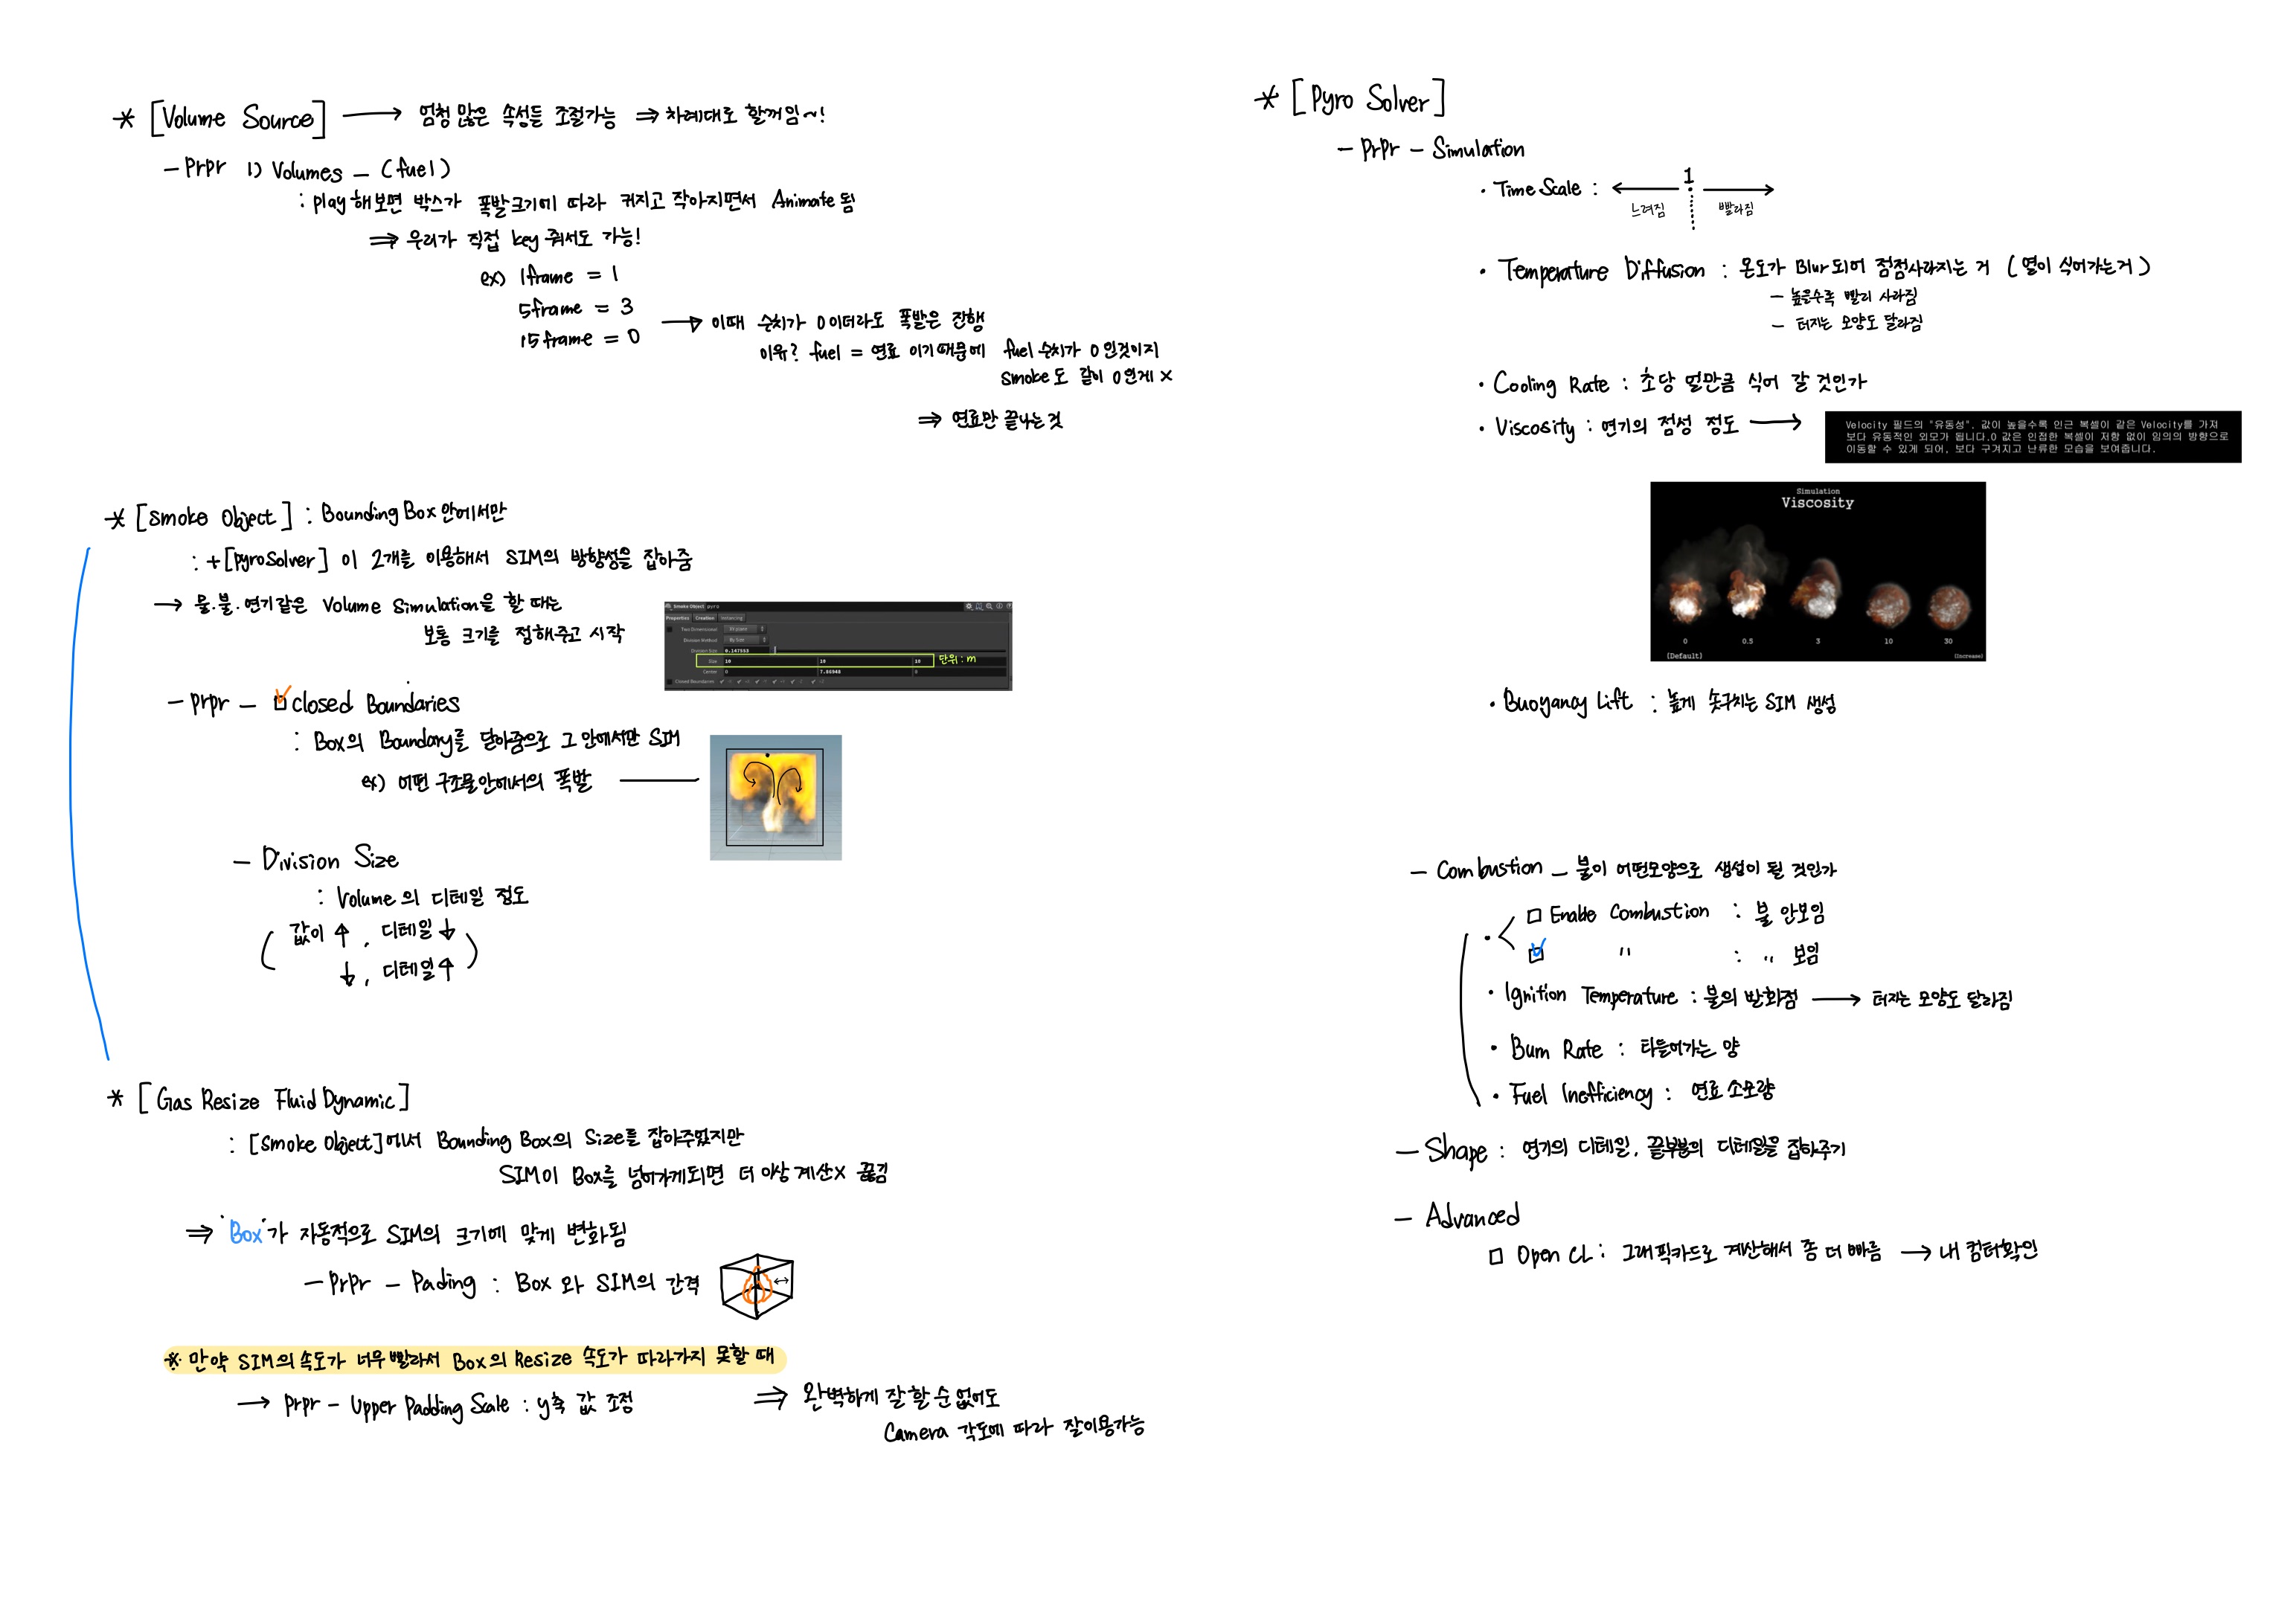 * [Volume Source] → 엄청 많은 속성들 조절가능 ⇒ 차례대로 할꺼임~!
- Prpr 1) Volumes - (fuel)
: play해보면 박스가 폭발크기에 따라 커지고 작아지면서 Animate됨
⇒ 우리가 직접 key 줘서도 가능!
ex) 1frame = 1
5frame = 3
15frame = 0 → 이때 수치가 0이더라도 폭발은 진행
이유? fuel = 연료 이기때문에 fuel 수치가 0인것이지
smoke도 같이 0인게 x
⇒ 연료만 끝나는것
* [Smoke Object] : Bounding Box 안에서만
: + [pyroSolver] 이 2개를 이용해서 SIM의 방향성을 잡아줌
→ 물.불.연기같은 Volume Simulation을 할 때는
보통 크기를 정해주고 시작
Smoke Object pyro
Properties Creation Instancing
Two Dimensional
Division Method By Size
Division Size 0.147553
Size 10 10 10 단위 : m
Center 0 7.86948 0
Closed Boundaries
- prpr - ☑ closed Boundaries
: Box의 Boundary를 닫아줌으로 그 안에서만 SIM
ex) 어떤 구조물안에서의 폭발
- Division Size
: Volume의 디테일 정도
( 값이 ↑ , 디테일 ↓
↓ , 디테일 ↑ )
* [Gas Resize Fluid Dynamic]
: [Smoke Object]에서 Bounding Box의 Size를 잡아주었지만
SIM이 Box를 넘어가게되면 더 이상 계산X 끊김
⇒ 'Box'가 자동적으로 SIM의 크기에 맞게 변화됨
- Prpr - Pading : Box 와 SIM의 간격
※ 만약 SIM의 속도가 너무빨라서 Box의 Resize 속도가 따라가지 못할 때
→ prpr - Upper Padding Scale : y축 값 조정 ⇒ 완벽하게 잘 할 순 없어도
Camera 각도에 따라 잘이용가능
* [Pyro Solver]
- Prpr - Simulation
· Time Scale : ← 1 →
느려짐 빨라짐
· Temperature Diffusion : 온도가 Blur되어 점점사라지는 거 (열이 식어가는거)
- 높을수록 빨리 사라짐
- 터지는 모양도 달라짐
· Cooling Rate : 초당 얼만큼 식어 갈 것인가
· Viscosity : 연기의 점성 정도 →
Velocity 필드의 "유동성". 값이 높을수록 인근 복셀이 같은 Velocity를 가져
보다 유동적인 외모가 됩니다.0 값은 인접한 복셀이 저항 없이 임의의 방향으로
이동할 수 있게 되어, 보다 구겨지고 난류한 모습을 보여줍니다.
Simulation
Viscosity
0 0.5 3 10 30
[Default] [Increase]
· Buoyancy Lift : 높게 솟구치는 SIM 생성
- Combustion - 불이 어떤모양으로 생성이 될 것인가
· < □ Enable Combustion : 불 안보임
☑ " : " 보임
· Ignition Temperature : 불의 발화점 → 터지는 모양도 달라짐
· Burn Rate : 타들어가는 양
· Fuel Inefficiency : 연료 소모량
- Shape : 연기의 디테일, 끝부분의 디테일을 잡아주기
- Advanced
□ Open CL : 그래픽카드로 계산해서 좀 더 빠름 → 내 컴터확인